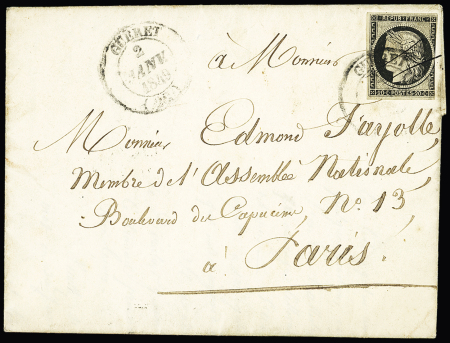 GUERET
2
JANV.
1849
(22)
REPUB. FRANC.
20 c POSTES 20 c
à Monsieur
Monsieur Edmond Fayolle,
Membre de l'Assemblée Nationale,
Boulevard des Capucines, No. 13,
à Paris.